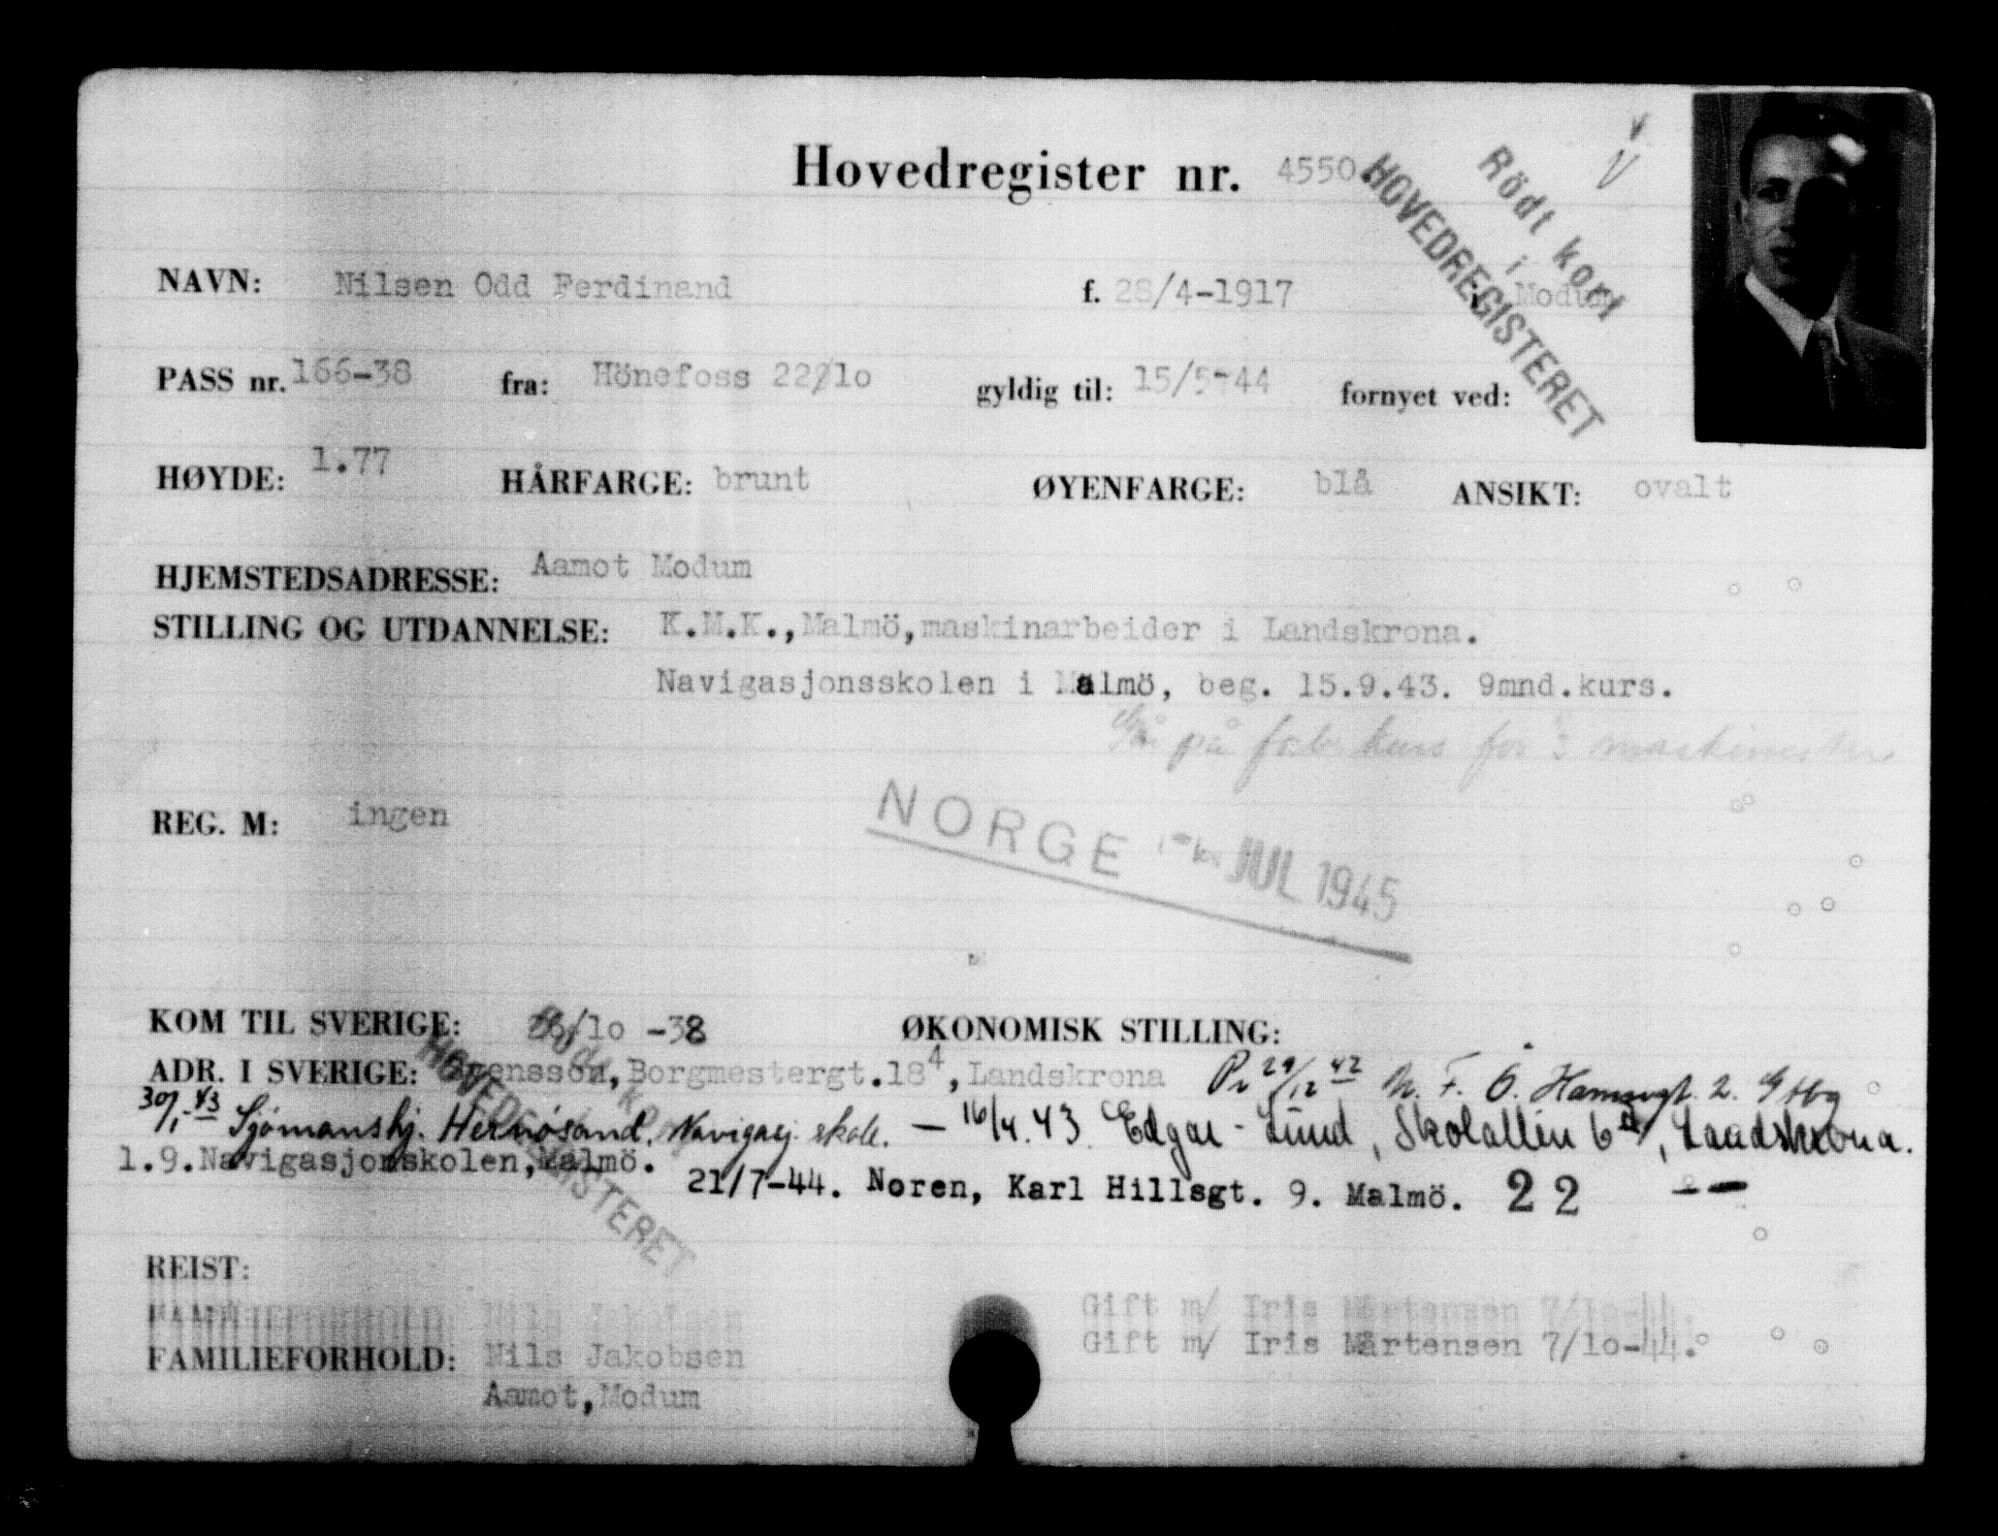 Hovedregister nr. 4550.
Rödt kort
i
HOVEDREGISTERET
NAVN: Nilsen Odd Ferdinand f. 28/4-1917 i Modum
PASS nr. 166-38 fra: Hönefoss 22/10 gyldig til: 15/5-44 fornyet ved:
HØYDE: 1.77 HÅRFARGE: brunt ØYENFARGE: blå ANSIKT: ovalt
HJEMSTEDSADRESSE: Aamot Modum
STILLING OG UTDANNELSE: K.M.K., Malmö, maskinarbeider i Landskrona.
Navigasjonsskolen i Malmö, beg. 15.9.43. 9mnd.kurs.
Går på kurs for 3 maskinister
REG. M: ingen
NORGE JUL 1945
KOM TIL SVERIGE: /10 -38 ØKONOMISK STILLING:
ADR. I SVERIGE: Borgmestergt.18⁴, Landskrona Pr 29/12 42 N. F. Ö. Hamngt. 2. Gtbg
30/1-43 Sjømanshj. Hernösand. Navigasj. skole. — 16/4.43 Edgar Lund, Skolallén 6, Landskrona.
1.9.Navigasjonskolen, Malmö. 21/7-44. Noren, Karl Hillsgt. 9. Malmö. 22 --
Rödt kort
HOVEDREGISTERET
REIST:
FAMILIEFORHOLD: Nils Jakobsen Gift m/ Iris Mårtensen 7/10-44.
Aamot, Modum